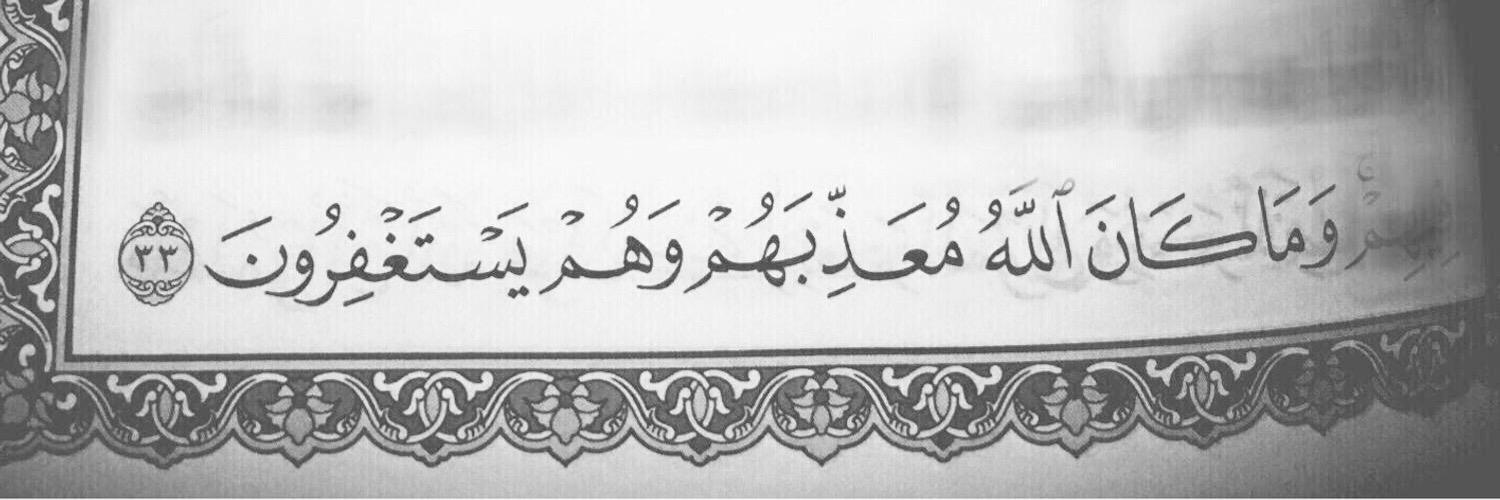 فِيهِمۡۚ وَمَا كَانَ ٱللَّهُ مُعَذِّبَهُمۡ وَهُمۡ يَسۡتَغۡفِرُونَ ٣٣